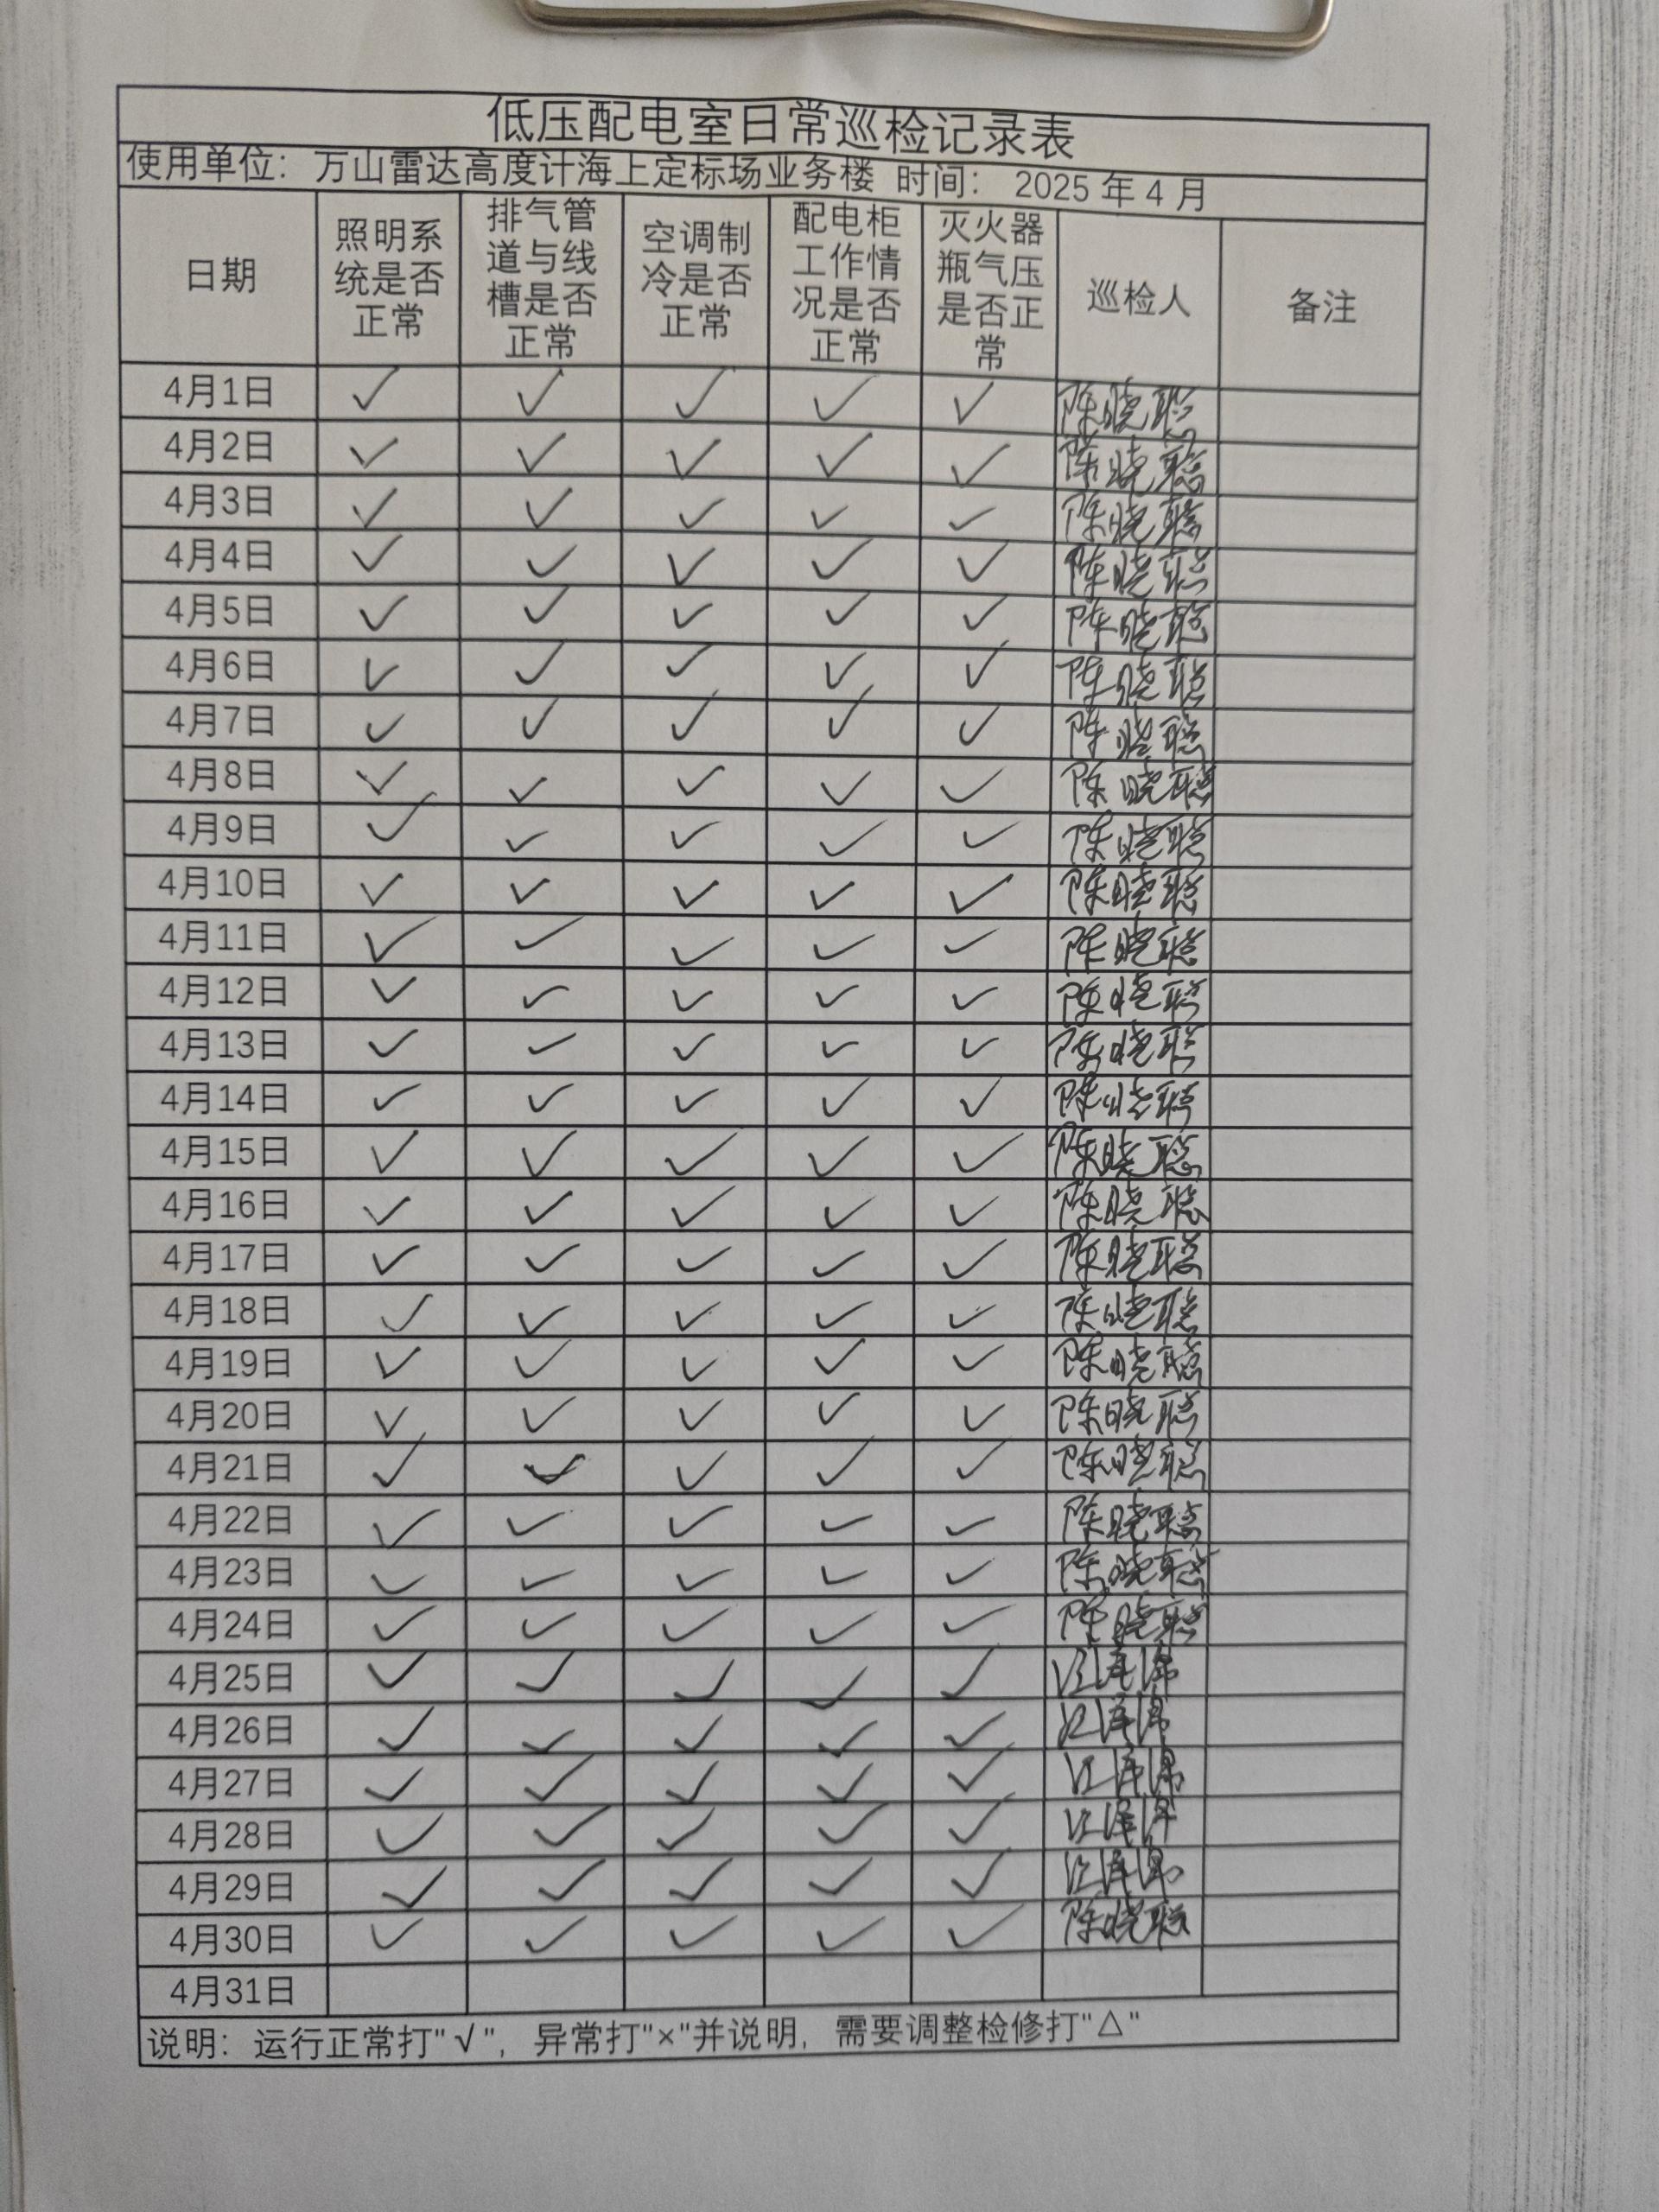 低压配电室日常巡检记录表
使用单位：万山雷达高度计海上定标场业务楼 时间： 2025 年 4 月
日期 照明系统是否正常 排气管道与线槽是否正常 空调制冷是否正常 配电柜工作情况是否正常 灭火器瓶气压是否正常 巡检人 备注
4月1日 ✓ ✓ ✓ ✓ ✓ 陈晓聪
4月2日 ✓ ✓ ✓ ✓ ✓ 陈晓聪
4月3日 ✓ ✓ ✓ ✓ ✓ 陈晓聪
4月4日 ✓ ✓ ✓ ✓ ✓ 陈晓聪
4月5日 ✓ ✓ ✓ ✓ ✓ 陈晓聪
4月6日 ✓ ✓ ✓ ✓ ✓ 陈晓聪
4月7日 ✓ ✓ ✓ ✓ ✓ 陈晓聪
4月8日 ✓ ✓ ✓ ✓ ✓ 陈晓聪
4月9日 ✓ ✓ ✓ ✓ ✓ 陈晓聪
4月10日 ✓ ✓ ✓ ✓ ✓ 陈晓聪
4月11日 ✓ ✓ ✓ ✓ ✓ 陈晓聪
4月12日 ✓ ✓ ✓ ✓ ✓ 陈晓聪
4月13日 ✓ ✓ ✓ ✓ ✓ 陈晓聪
4月14日 ✓ ✓ ✓ ✓ ✓ 陈晓聪
4月15日 ✓ ✓ ✓ ✓ ✓ 陈晓聪
4月16日 ✓ ✓ ✓ ✓ ✓ 陈晓聪
4月17日 ✓ ✓ ✓ ✓ ✓ 陈晓聪
4月18日 ✓ ✓ ✓ ✓ ✓ 陈晓聪
4月19日 ✓ ✓ ✓ ✓ ✓ 陈晓聪
4月20日 ✓ ✓ ✓ ✓ ✓ 陈晓聪
4月21日 ✓ ✓ ✓ ✓ ✓ 陈晓聪
4月22日 ✓ ✓ ✓ ✓ ✓ 陈晓聪
4月23日 ✓ ✓ ✓ ✓ ✓ 陈晓聪
4月24日 ✓ ✓ ✓ ✓ ✓ 陈晓聪
4月25日 ✓ ✓ ✓ ✓ ✓
4月26日 ✓ ✓ ✓ ✓ ✓
4月27日 ✓ ✓ ✓ ✓ ✓
4月28日 ✓ ✓ ✓ ✓ ✓
4月29日 ✓ ✓ ✓ ✓ ✓
4月30日 ✓ ✓ ✓ ✓ ✓ 陈晓聪
4月31日
说明：运行正常打"√"，异常打"×"并说明，需要调整检修打"△"